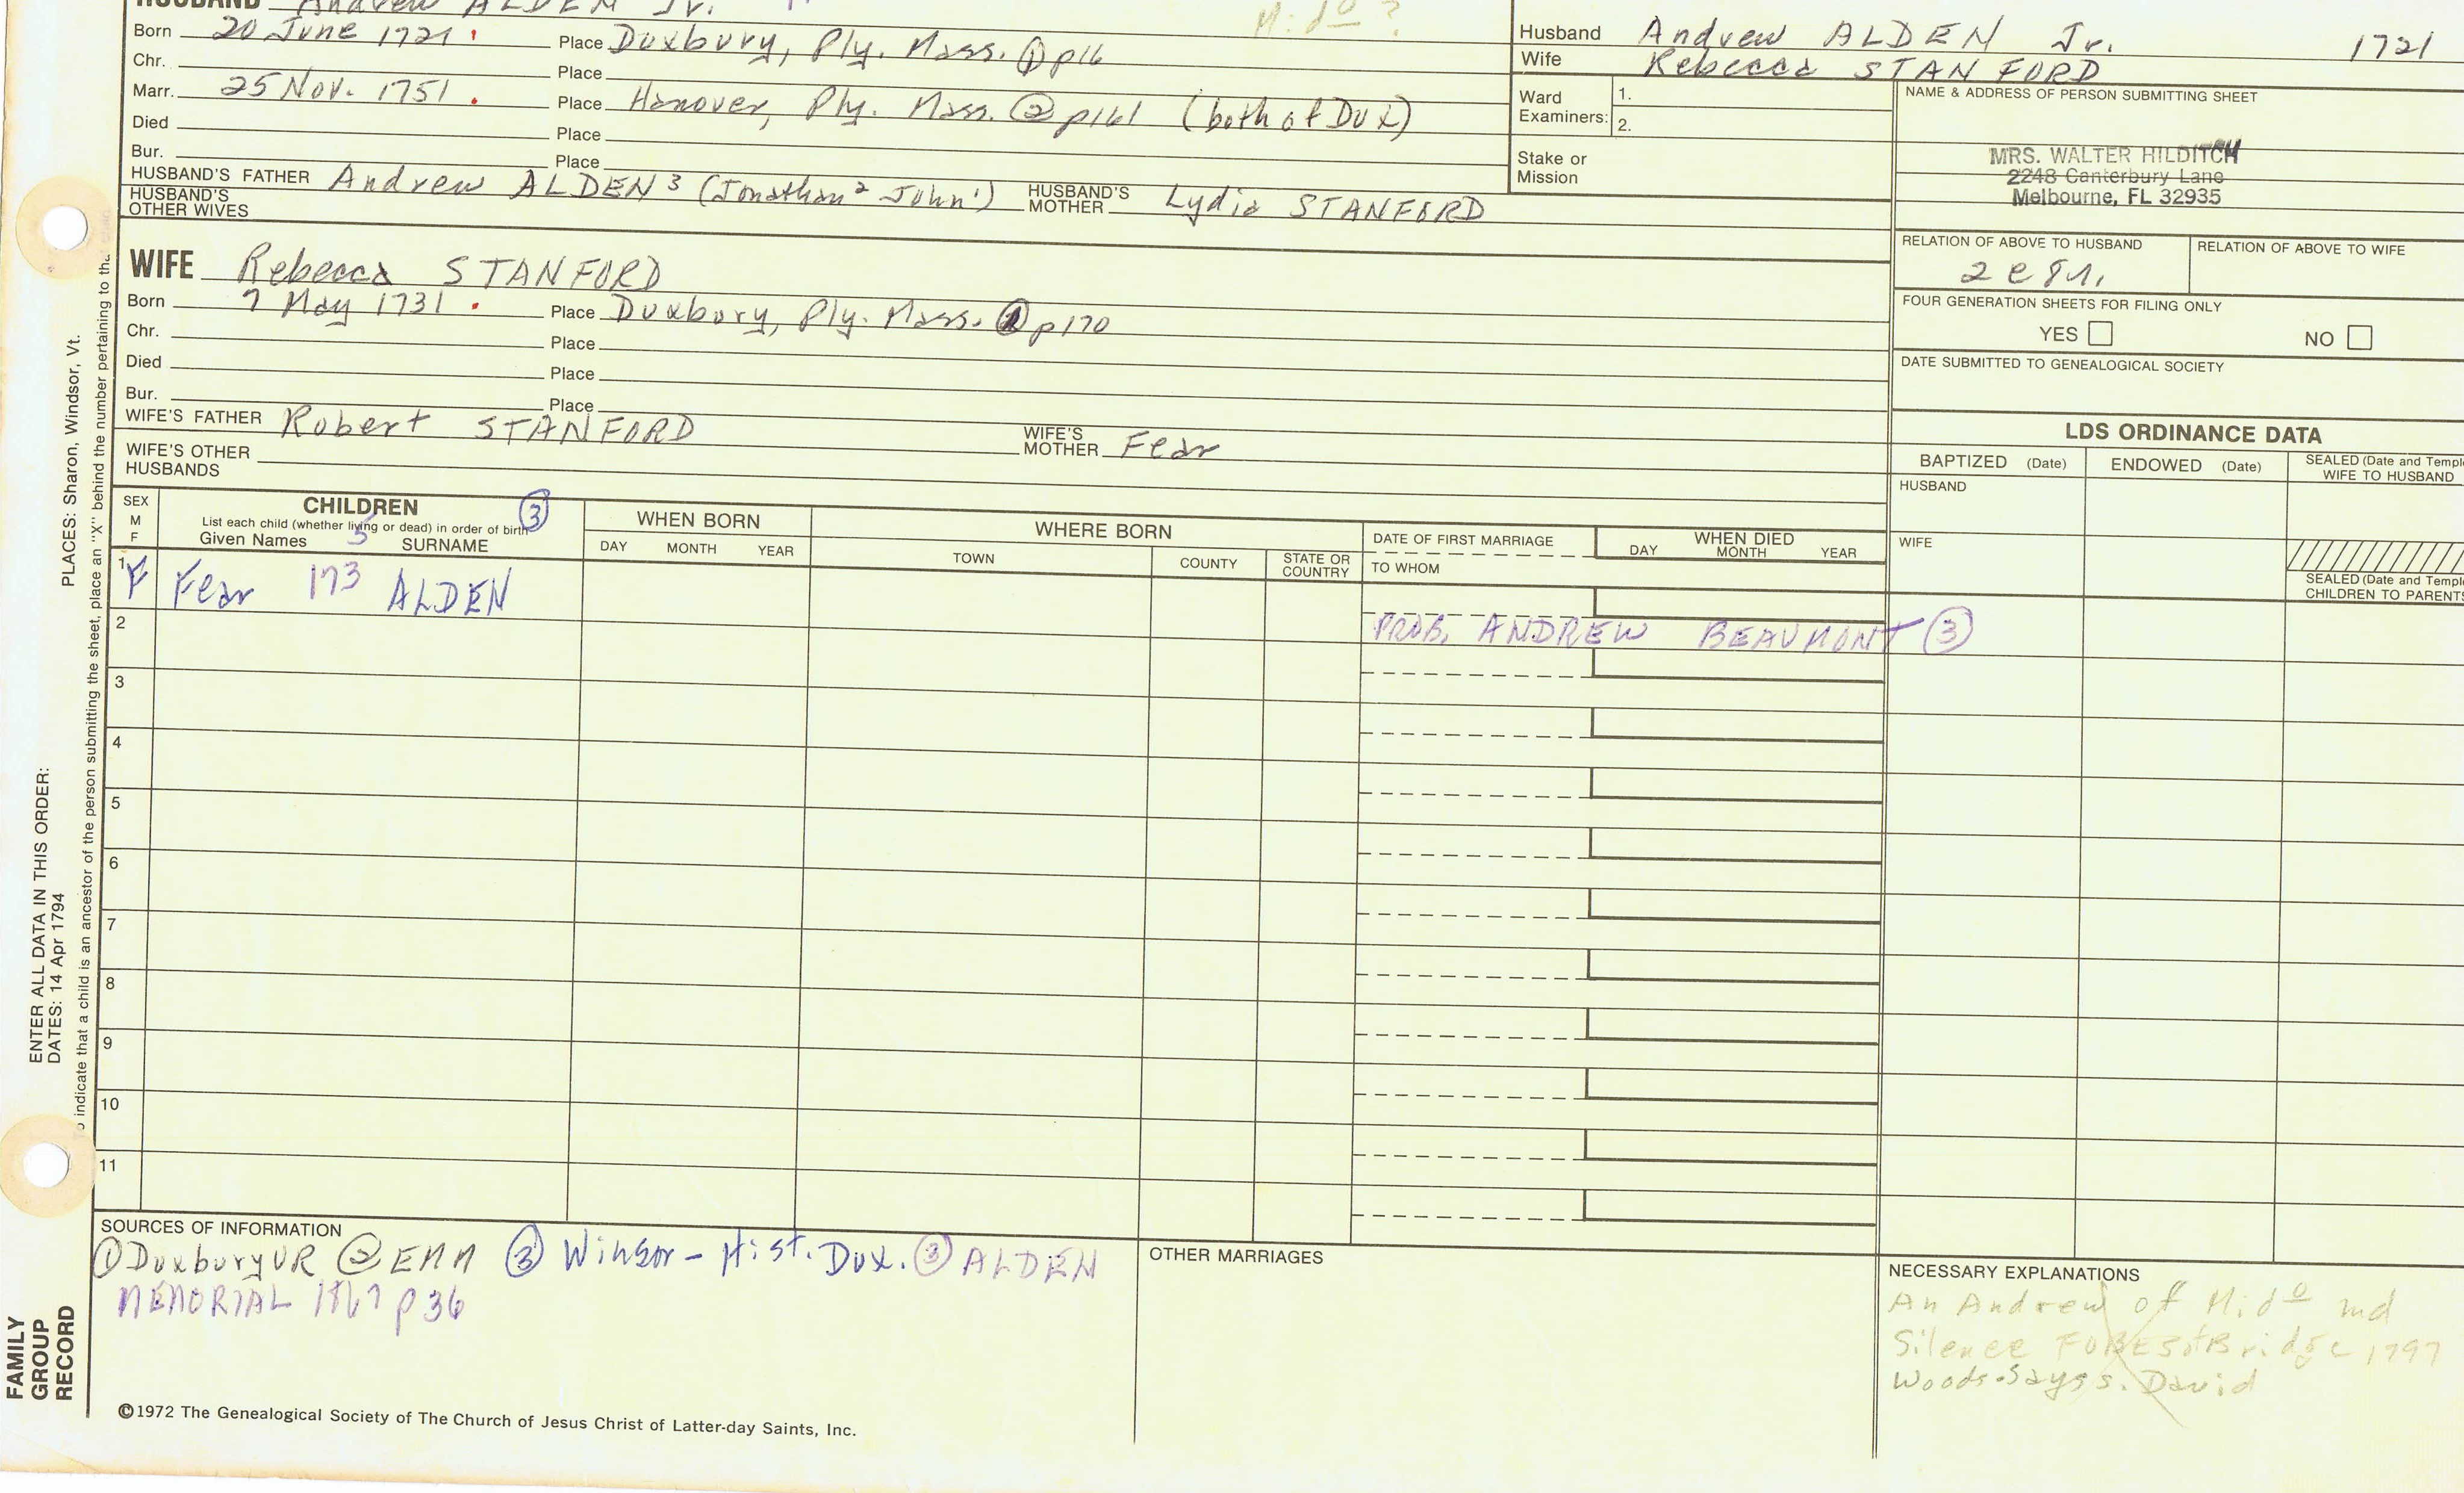 HUSBAND Andrew ALDEN Jr.
Mido ?
Born 20 June 1721 Place Duxbury, Ply. Mass. ① p16
Chr. Place
Marr. 25 Nov. 1751 Place Hanover, Ply. Mass. ② p161 (both of Dux)
Died Place
Bur. Place
HUSBAND'S FATHER Andrew ALDEN³ (Jonathan² John¹) HUSBAND'S MOTHER Lydia STANFORD
HUSBAND'S OTHER WIVES
Husband Andrew ALDEN Jr. 1721
Wife Rebecca STANFORD
Ward Examiners: 1.
2.
Stake or Mission
NAME & ADDRESS OF PERSON SUBMITTING SHEET
MRS. WALTER HILDITCH
2248 Canterbury Lane
Melbourne, FL 32935
RELATION OF ABOVE TO HUSBAND RELATION OF ABOVE TO WIFE
FOUR GENERATION SHEETS FOR FILING ONLY
YES NO
DATE SUBMITTED TO GENEALOGICAL SOCIETY
WIFE Rebecca STANFORD
Born 7 May 1731 Place Duxbury, Ply. Mass. ① p170
Chr. Place
Died Place
Bur. Place
WIFE'S FATHER Robert STANFORD WIFE'S MOTHER Fear
WIFE'S OTHER HUSBANDS
LDS ORDINANCE DATA
BAPTIZED (Date) ENDOWED (Date) SEALED (Date and Templ
WIFE TO HUSBAND
HUSBAND
WIFE
SEALED (Date and Templ
CHILDREN TO PARENTS
SEX M F
CHILDREN ③
List each child (whether living or dead) in order of birth
Given Names 5 SURNAME
WHEN BORN
DAY MONTH YEAR
WHERE BORN
TOWN COUNTY STATE OR COUNTRY
DATE OF FIRST MARRIAGE
TO WHOM
WHEN DIED
DAY MONTH YEAR
1 F Fear 173 ALDEN
PROB. ANDREW BEAUMONT ③
2
3
4
5
6
7
8
9
10
11
SOURCES OF INFORMATION
① Duxbury VR ② EMM ③ Winsor - Hist. Dux. ③ ALDEN
MEMORIAL 1867 p 36
OTHER MARRIAGES
NECESSARY EXPLANATIONS
An Andrew of Mido md
Silence FOBES of Bridge 1797
Woods says s. David
©1972 The Genealogical Society of The Church of Jesus Christ of Latter-day Saints, Inc.
FAMILY GROUP RECORD
ENTER ALL DATA IN THIS ORDER:
DATES: 14 Apr 1794
PLACES: Sharon, Windsor, Vt.
To indicate that a child is an ancestor of the person submitting the sheet, place an "X" behind the number pertaining to that